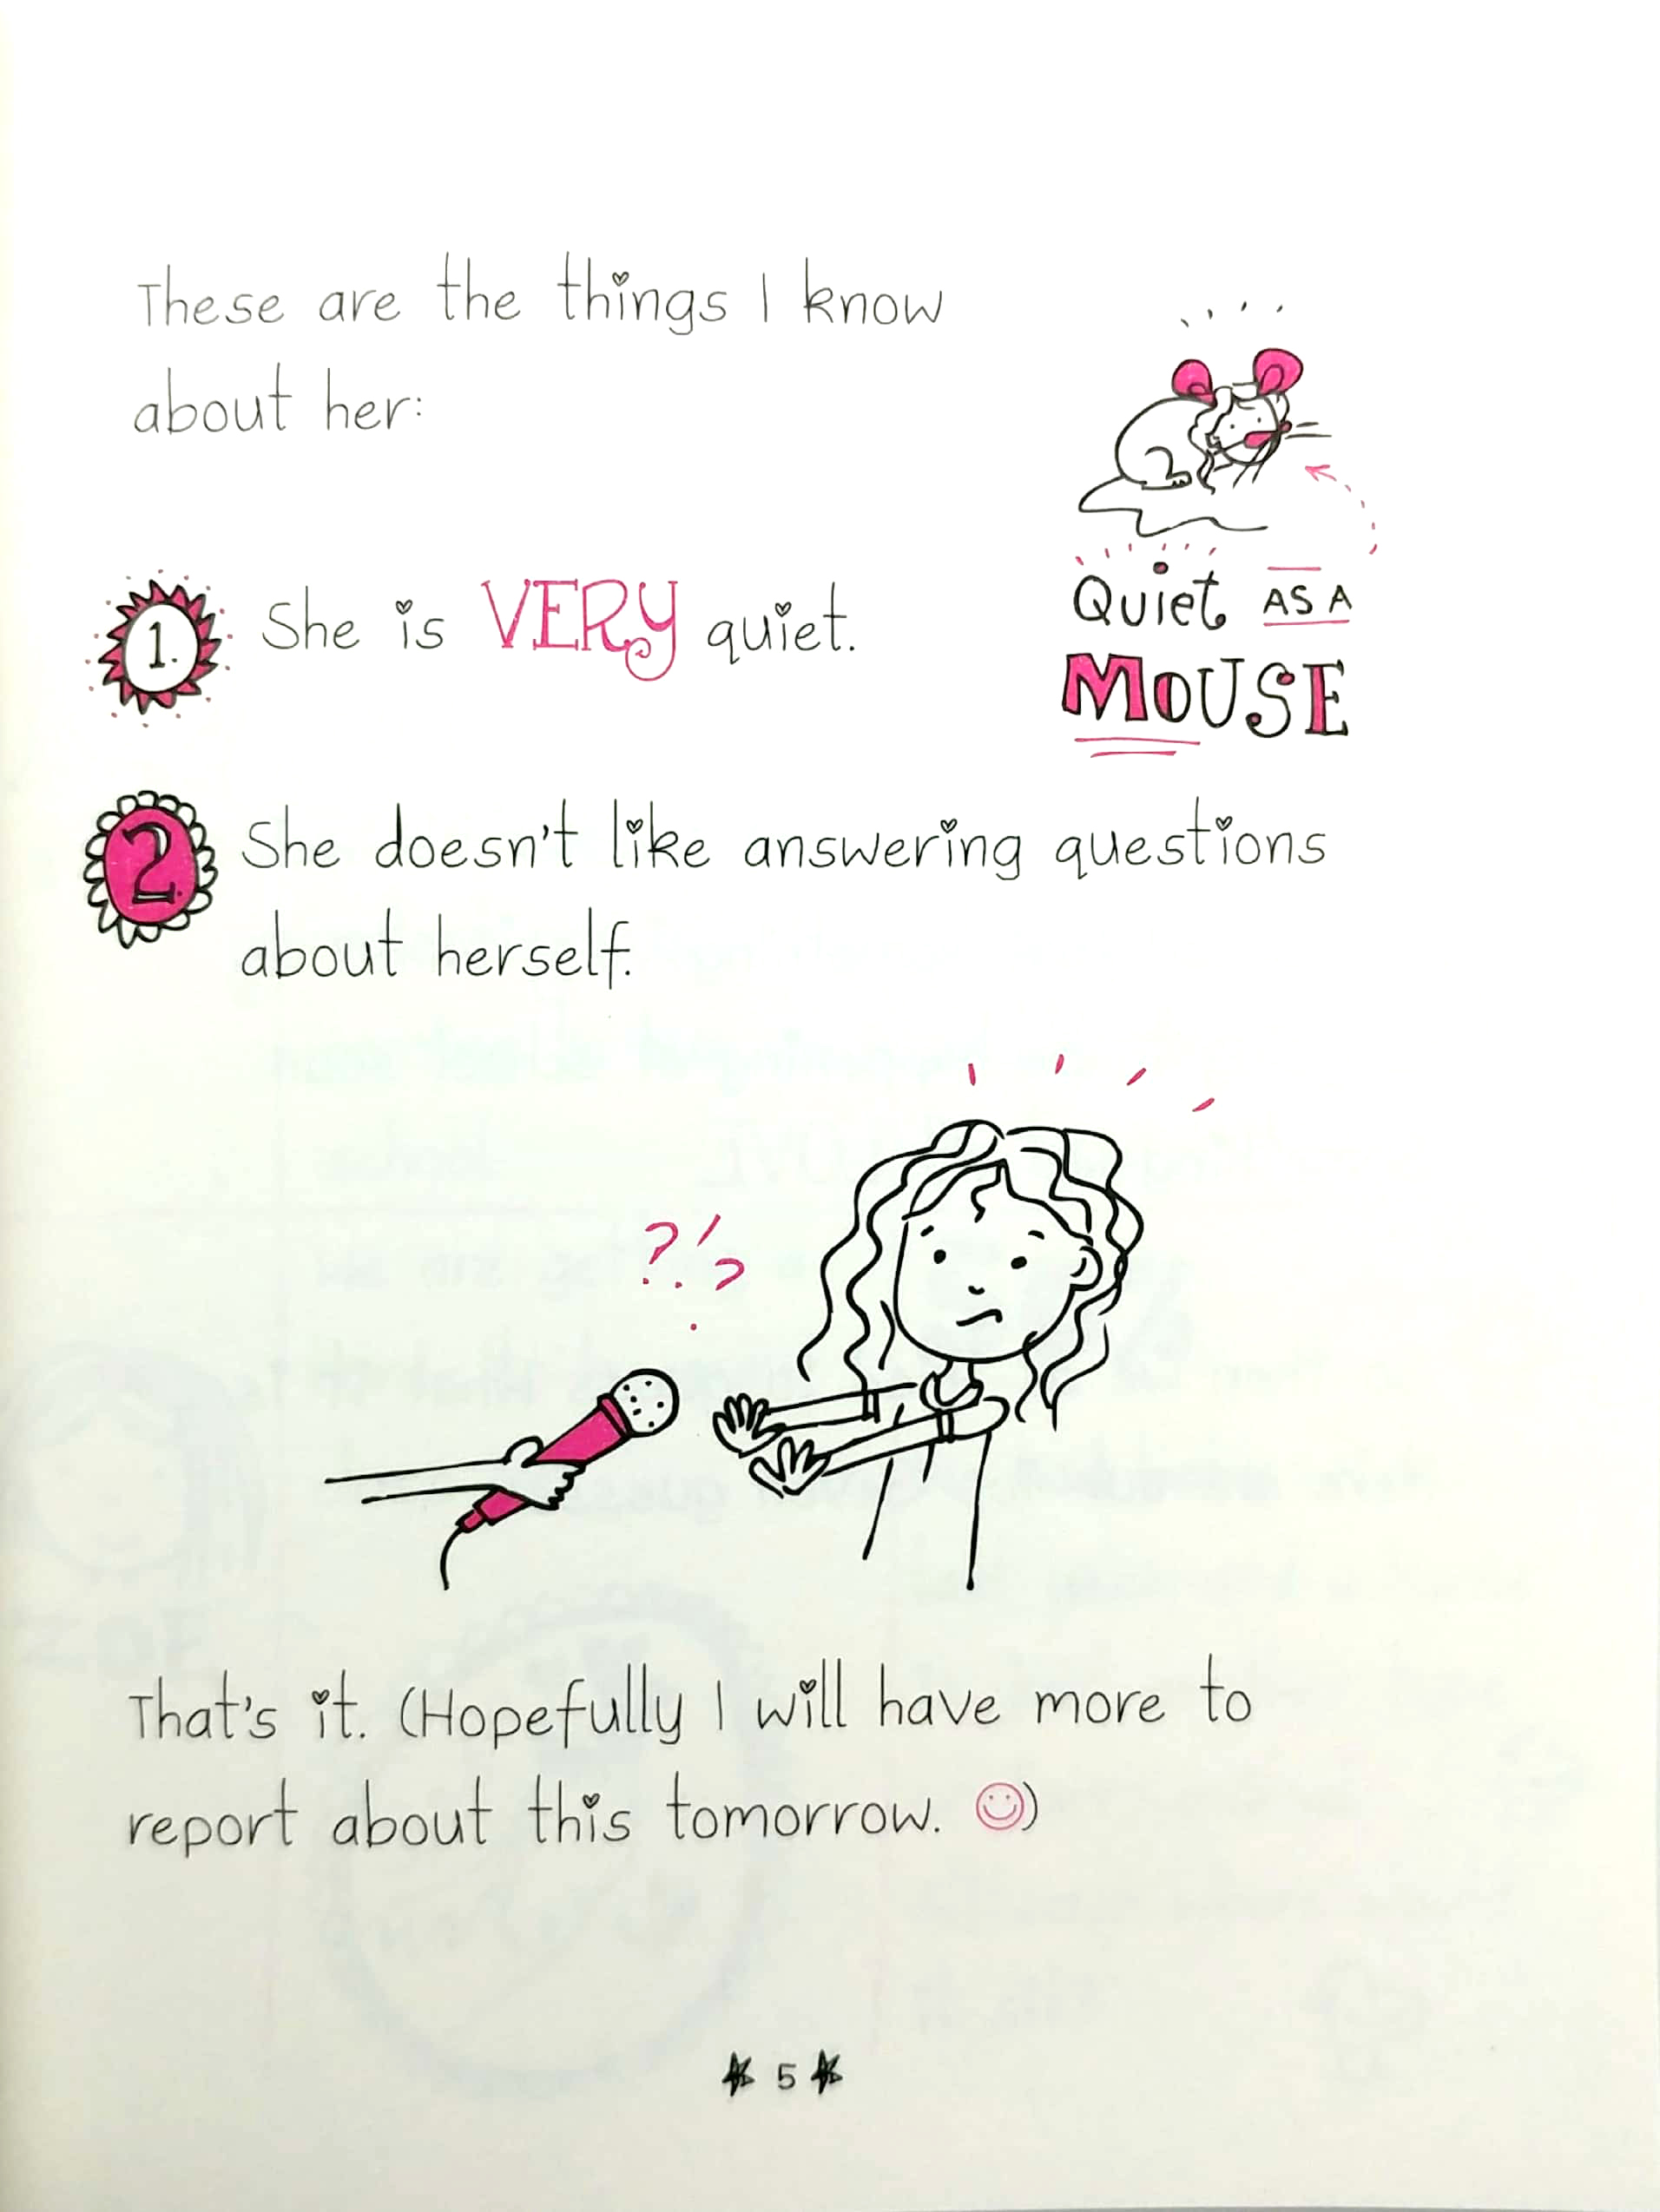 These are the things I know
about her:
1. She is VERY quiet.
Quiet AS A
MOUSE
2. She doesn't like answering questions
about herself.
?!?
That's it. (Hopefully I will have more to
report about this tomorrow. ☺)
5